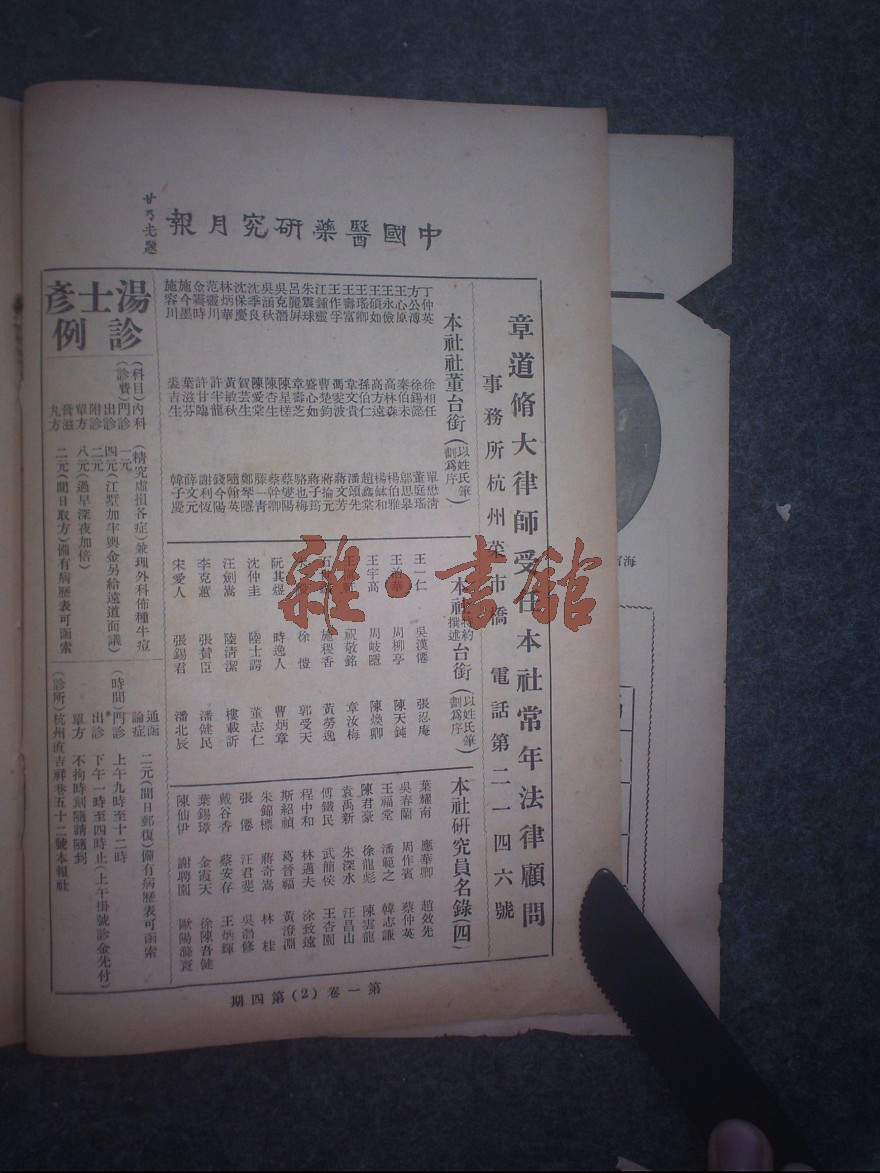 中國醫藥研究月報
甘乃光題
章道脩大律師受任本社常年法律顧問
事務所杭州菜市橋 電話第二一四六號
本社社董台銜(以姓氏筆劃爲序)
丁仲英 徐相任 單懋清
方公溥 徐錫懿 董庭瑤
王心原 秦伯未 鄔思皋
王永儉 高林森 楊伯雅
王碩如 高方遠 楊錸和
王瑤卿 孫伯仁 趙鑫棠
王壽富 章文貴 潘頌先
王作孚 馮雯波 蔣文芳
江鍾靈 曹楚鈞 蔣掄元
朱震球 盛心如 蔣子筠
呂麗屏 章壽芝 駱也梅
吳克潛 陳星槎 蔡燮陽
吳涵秋 陳杏生 蔡幹卿
沈季良 陳愛棠 滕一靑
沈保慶 賀芸生 鄭琴隱
林炳華 黃敏秋 隨翰英
范靈川 許半龍 錢今陽
金震時 許甘臨 謝利恆
施今墨 葉滋芬 薛文元
施容川 裘吉生 韓子慶
本社特約撰述台銜(以姓氏筆劃爲序)
王一仁 吳漢僊 張忍庵
王治華 周柳亭 陳天鈍
王宇高 周岐隱 陳煥卿
祝敬銘 章汝梅
施稷香 黃勞逸
徐愷 郭受天
阮其煜 時逸人 曹炳章
沈仲圭 陸士諤 董志仁
汪劍嵩 陸淸潔 樓載訢
李克蕙 張贊臣 潘健民
宋愛人 張錫君 潘北辰
本社研究員名錄(四)
葉耀南 應華卿 趙效先
吳春蘭 周作賓 蔡仲英
王福堂 潘範之 韓志謙
陳君豪 徐龍彪 陳雲龍
袁禹新 朱深水 汪昌山
傅鐵民 武簡侯 王杏園
程中和 林邁夫 涂致遠
斯紹禎 葛晉福 黃澄淵
朱錦標 蔣奇嵩 林桂
張僊 汪君斐 吳潛修
戴谷香 蔡安存 王炳輝
葉錫璋 金霞天 徐陳吾健
陳仙伊 謝聘園 歐陽滌寰
湯士彥診例
(科目)內科(精究虛損各症)兼理外科佈種牛痘
(診費)門診 一元
出診 四元(江墅加半輿金另給遠道面議)
附診 二元
單方 八元(過早深夜加倍)
膏滋丸方 二元(間日取方)備有病歷表可函索
通函論症 二元(間日郵復)備有病歷表可函索
(時間)門診 上午九時至十二時
出診 下午一時至四時止(上午掛號診金先付)
單方 不拘時刻隨請隨到
(診所)杭州直吉祥巷五十二號本報社
第一卷(2)第四期
雜·書館
海